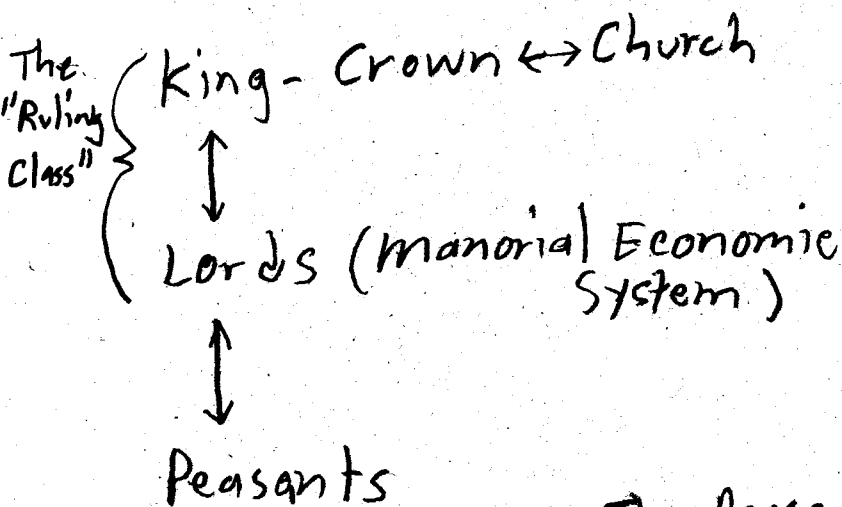 The
"Ruling
Class"
King - Crown ↔ Church
Lords (Manorial Economic
System)
Peasants